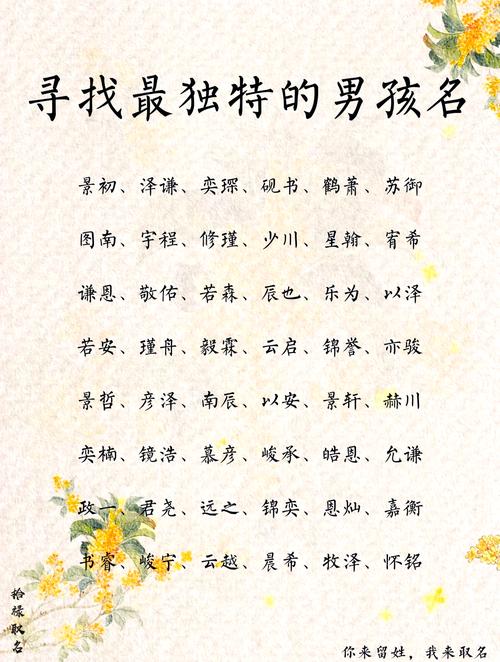 寻找最独特的男孩名
景初、泽谦、奕琛、砚书、鹤萧、苏御
图南、宇程、修瑾、少川、星翰、宥希
谦恩、敬佑、若森、辰也、乐为、以泽
若安、瑾舟、毅霖、云启、锦誉、亦骏
景哲、彦泽、南辰、以安、景轩、赫川
奕楠、镜浩、慕彦、峻承、皓恩、允谦
政一、君尧、远之、锦奕、恩灿、嘉衡
书睿、峻宁、云越、晨希、牧泽、怀铭
拾禄取名
你来留姓，我来取名